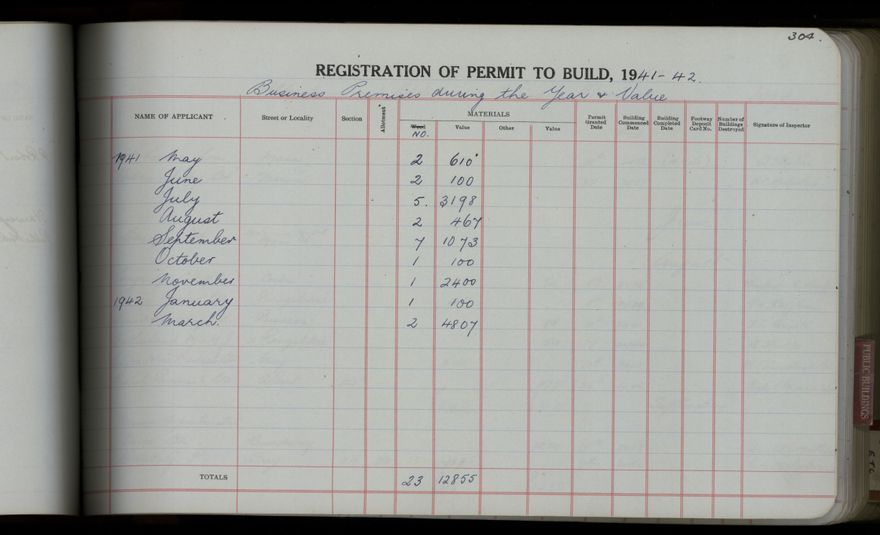 304.
REGISTRATION OF PERMIT TO BUILD, 1941-42.
Business Premises during the Year & Value
NAME OF APPLICANT Street or Locality Section Allotment MATERIALS Permit Granted Date Building Commenced Date Building Completed Date Footway Deposit Card No. Number of Buildings Destroyed Signature of Inspector
NO. Value Other Value
1941 May 2 610
June 2 100
July 5. 3198
August 2 467
September 7 1073
October 1 100
November 1 2400
1942 January 1 100
March. 2 4807
TOTALS 23 12855
PUBLIC BUILDINGS